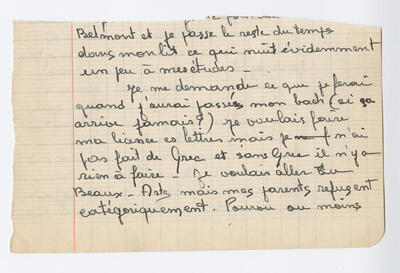 Belmont et je passe le reste du temps
dans mon lit ce qui nuit évidemment
un peu à mes études _
Je me demande ce que je ferai
quand j'aurai passé mon bach (si ça
arrive jamais?) Je voulais faire
ma licence es lettres mais je n'ai
pas fait de Grec et sans Grec il n'y a
rien à faire _ Je voulais aller au
Beaux-Arts mais mes parents refusent
catégoriquement. Pourvu au moins